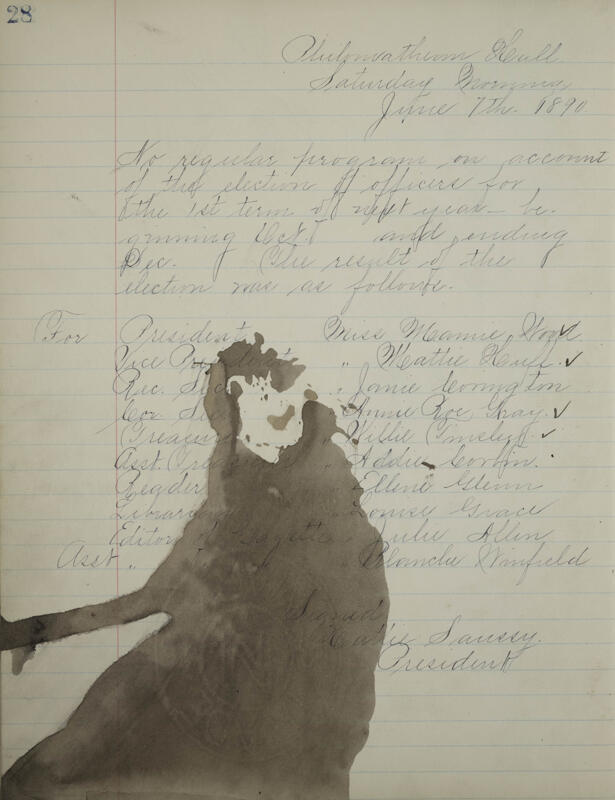 28
Philomathean Hall
Saturday Morning
June 7th. 1890
No regular program on account
of the election of officers for
the 1st term of next year - be-
ginning Oct. and ending
Dec. The result of the
election was as follows.
For President Miss Mamie Wood ✓
Vice President " Mattie Hull. ✓
Rec. Sec " Janie Covington
Cor Sec " Annie Roe Gray. ✓
Treasurer " Willie Tinsley ✓
Asst. Treasurer " Addie Corbin.
Reader Ellene Glenn
Librarian Louise Grace
Editor of Gazette " Julie Allen
Asst " " " Blanche Winfield
Signed
Saussy.
President